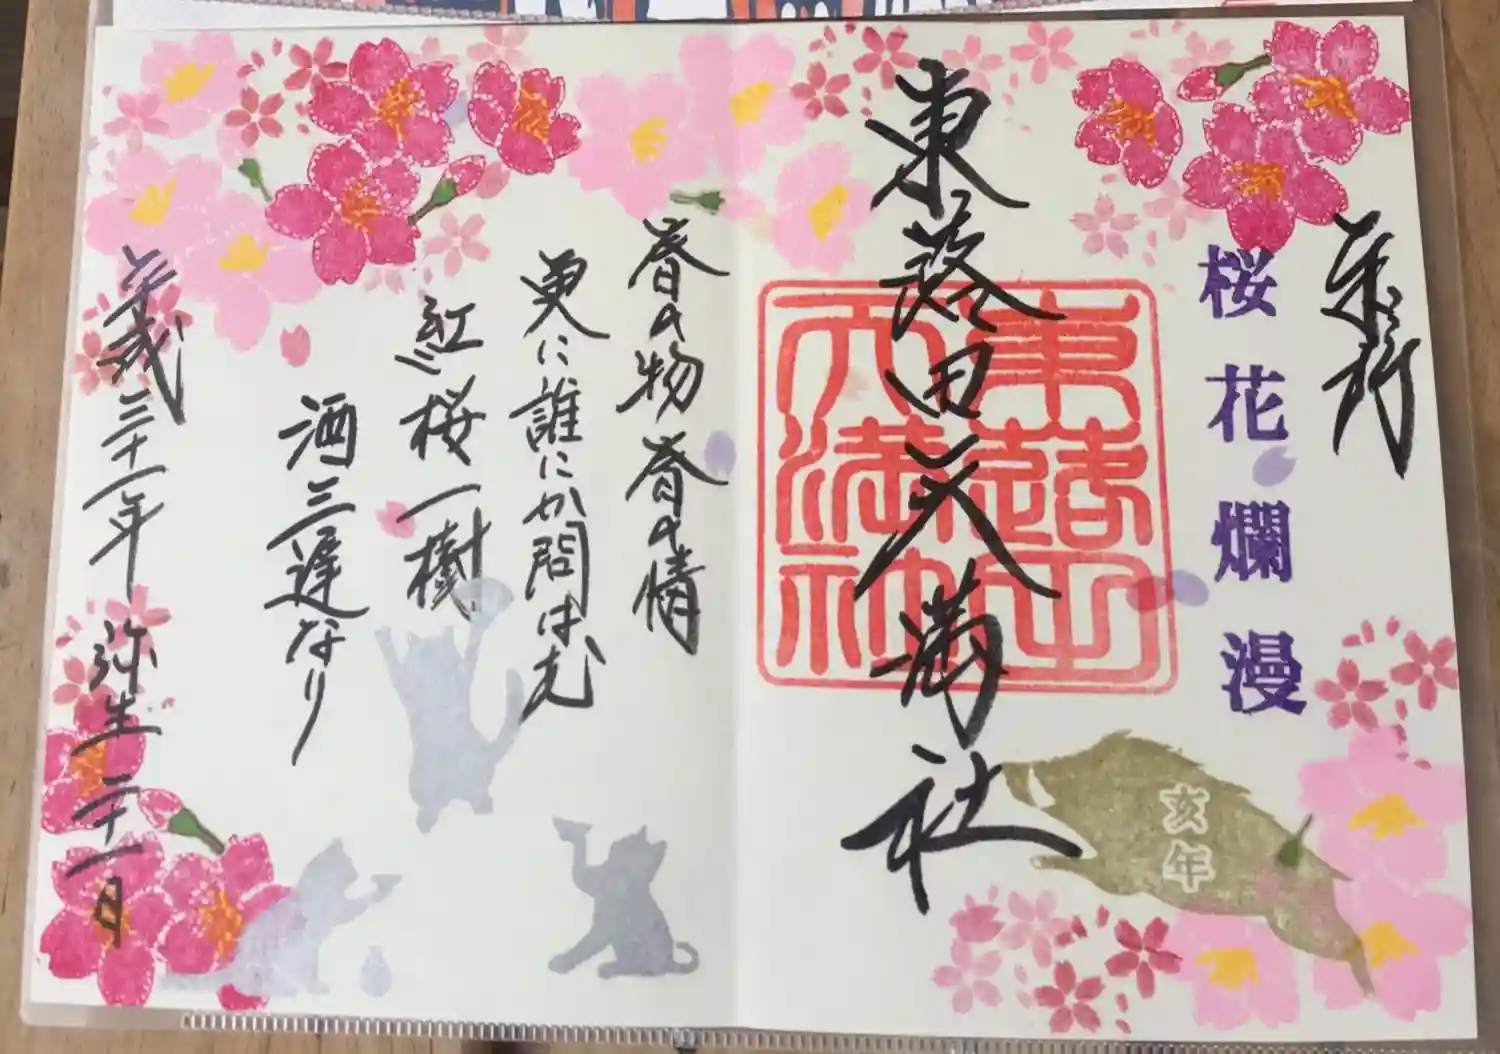 奉拝
桜花爛漫
東蕗田天満社
東蕗田
天満社
亥年
春の物春の情
更に誰にか問はむ
紅桜一樹
酒三遅なり
平成三十一年 弥生二十一日